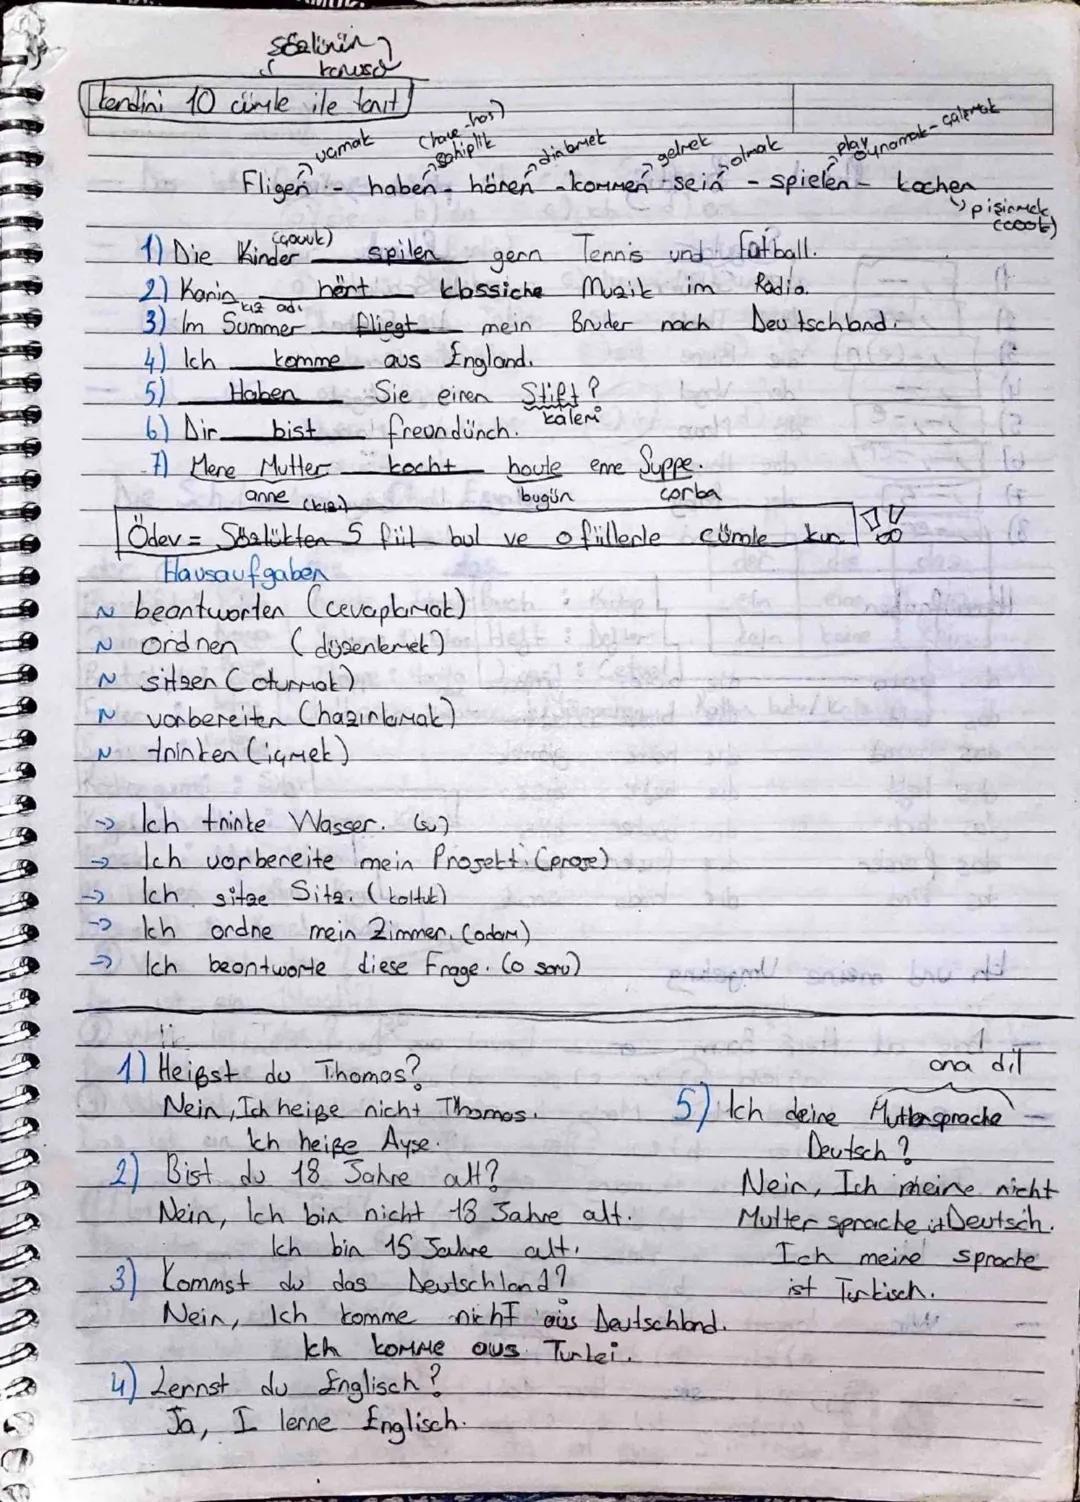 sözlünün
konusu
kendini 10 cümle ile tanıt
uçmak (have-has) sahiplik dinlemek gelmek olmak play oynamak-çalmak
Fligen - haben - hören - kommen - sein - spielen - kochen
pişirmek (cook)
(çocuk)
1) Die Kinder spilen gern Tennis und Futball.
2) Karin hört klassiche Musik im Radio.
kız adı
3) Im Summer fliegt mein Bruder nach Deutschland.
4) Ich komme aus England.
5) Haben Sie einen Stift?
kalem
6) Dir bist freundünch.
7) Mene Mutter kocht houte eine Suppe.
anne bugün çorba
Ödev = Sözlükten 5 fiil bul ve o fiillerle cümle kur !!
Hausaufgaben
~ beantworten (cevaplamak)
~ ordnen (düzenlemek)
~ sitzen (oturmak)
~ vorbereiten (hazırlamak)
~ trinken (içmek)
→ Ich trinke Wasser. (su)
→ Ich vorbereite mein Projekt. (proje)
→ Ich sitze Sitz. (koltuk)
→ Ich ordne mein Zimmer. (odam)
→ Ich beantworte diese Frage. (o soru)
1) Heißst du Thomas?
Nein, Ich heiße nicht Thomas.
Ich heiße Ayşe.
2) Bist du 18 Jahre alt?
Nein, Ich bin nicht 18 Jahre alt.
Ich bin 15 Jahre alt.
3) Kommst du das Deutschland?
Nein, Ich komme nicht aus Deutschland.
Ich komme aus Turkei.
4) Lernst du Englisch?
Ja, I lerne Englisch.
ana dil
5) Ich deine Muttersprache
Deutsch?
Nein, Ich meine nicht
Mutter sprache ist Deutsch.
Ich meine sprache
ist Turkisch.